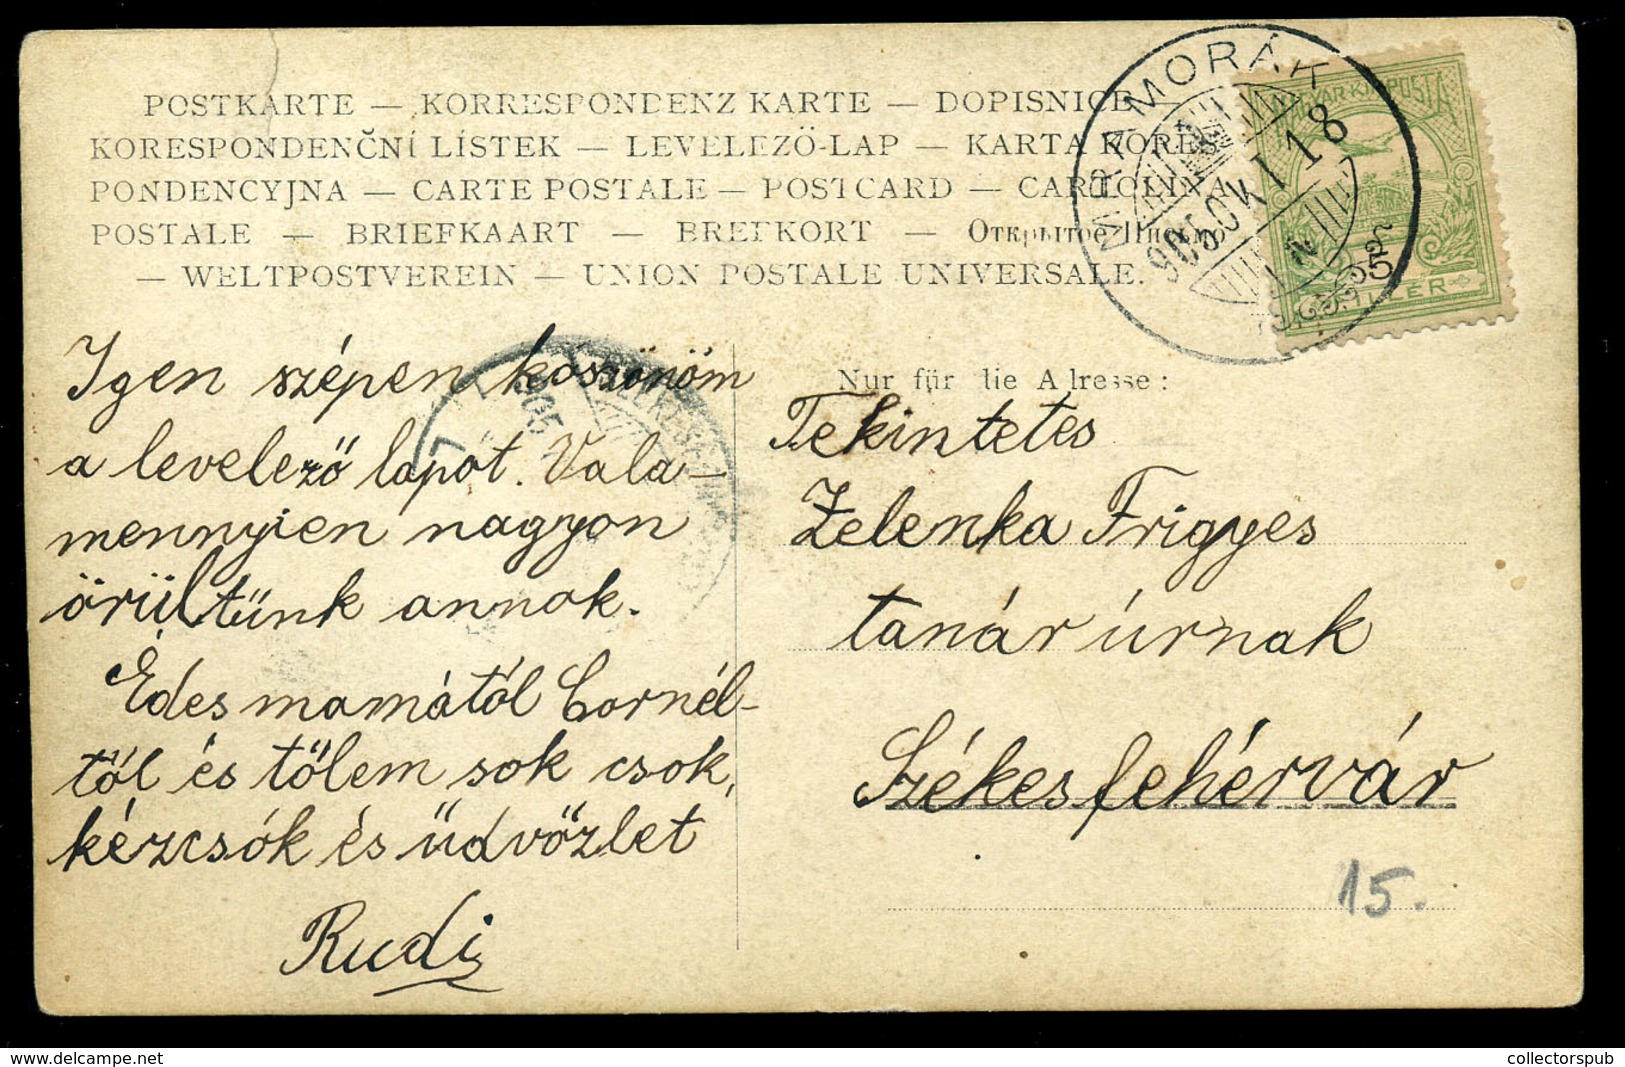 POSTKARTE — KORRESPONDENZ KARTE — DOPISNICE —
KORESPONDENČNÍ LÍSTEK — LEVELEZÖ-LAP — KARTA KORES-
PONDENCYJNA — CARTE POSTALE — POSTCARD — CARTOLINA
POSTALE — BRIEFKAART — BREFKORT — Открытое Письмо
— WELTPOSTVEREIN — UNION POSTALE UNIVERSALE.
MORÁK
905
118
MAGYAR KIR. POSTA
5
FILLÉR
Igen szépen köszönöm
a levelező lapot. Vala-
mennyien nagyon
örültünk annak.
Édes mamától Cornél-
tól és tőlem sok csok,
kézcsók és üdvözlet
Rudi
Nur für die Adresse:
Tekintetes
Zelenka Frigyes
tanár úrnak
Székesfehérvár
15.
www.delcampe.net
collectorspub